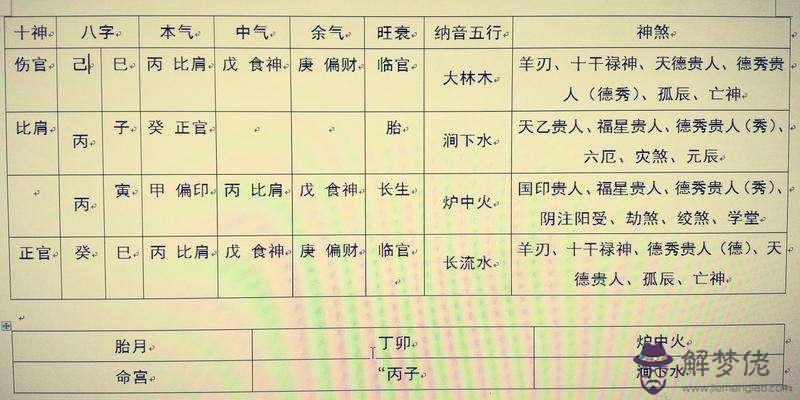 十神 八字 本气 中气 余气 旺衰 纳音五行 神煞
伤官 己 巳 丙 比肩 戊 食神 庚 偏财 临官 大林木 羊刃、十干禄神、天德贵人、德秀贵
人（德秀）、孤辰、亡神
比肩 丙 子 癸 正官 胎 涧下水 天乙贵人、福星贵人、德秀贵人（秀）、
六厄、灾煞、元辰
丙 寅 甲 偏印 丙 比肩 戊 食神 长生 炉中火 国印贵人、福星贵人、德秀贵人（秀）、
阴注阳受、劫煞、绞煞、学堂
正官 癸 巳 丙 比肩 戊 食神 庚 偏财 临官 长流水 羊刃、十干禄神、德秀贵人（德）、天
德贵人、孤辰、亡神
胎月 丁卯 炉中火
命宫 “丙子 涧下水
解梦佬
www.jiemenglao.com